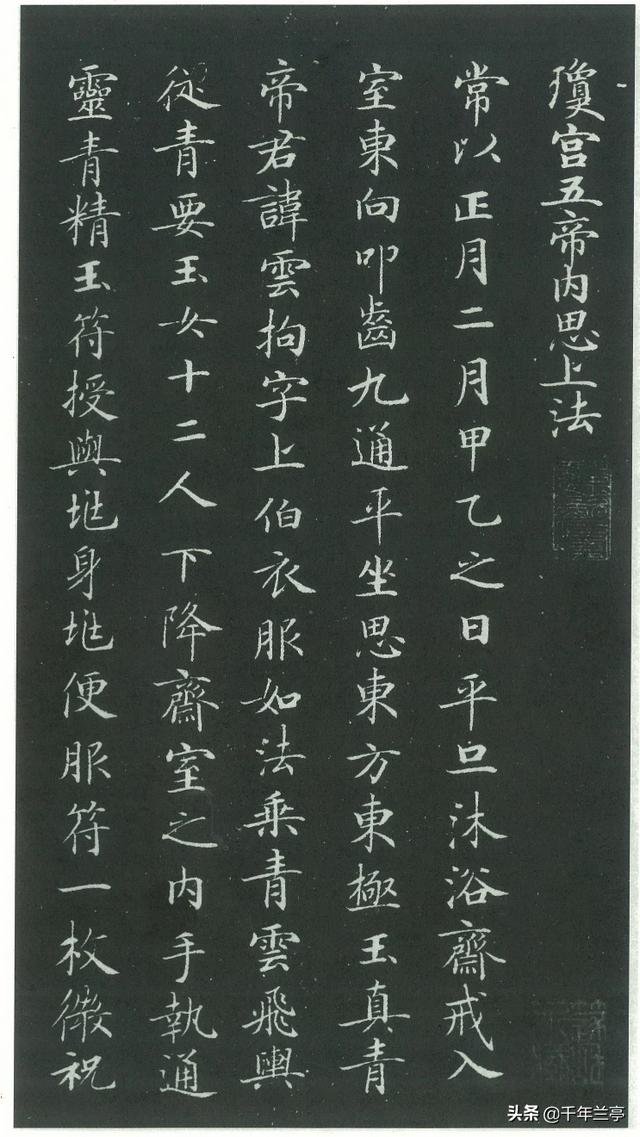 瓊宫五帝内思上法
常以正月二月甲乙之日平旦沐浴齋戒入
室東向叩齒九通平坐思東方東極玉真青
帝君諱雲拘字上伯衣服如法乘青雲飛輿
從青要玉女十二人下降齋室之内手執通
靈青精玉符授與地身地便服符一枚微祝
头条 @千年兰亭